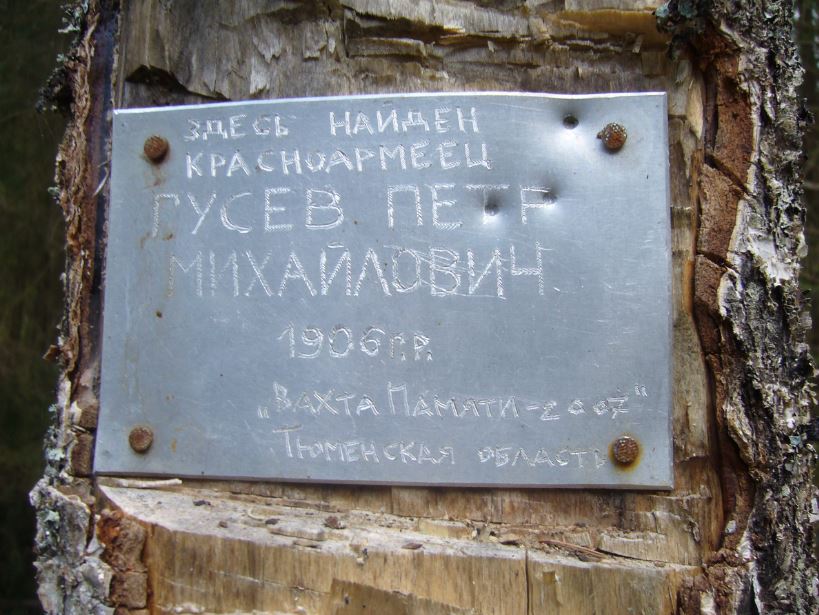 ЗДЕСЬ НАЙДЕН
КРАСНОАРМЕЕЦ
ГУСЕВ ПЕТР
МИХАЙЛОВИЧ
1906 г.р.
„Вахта Памяти-2007"
Тюменская область